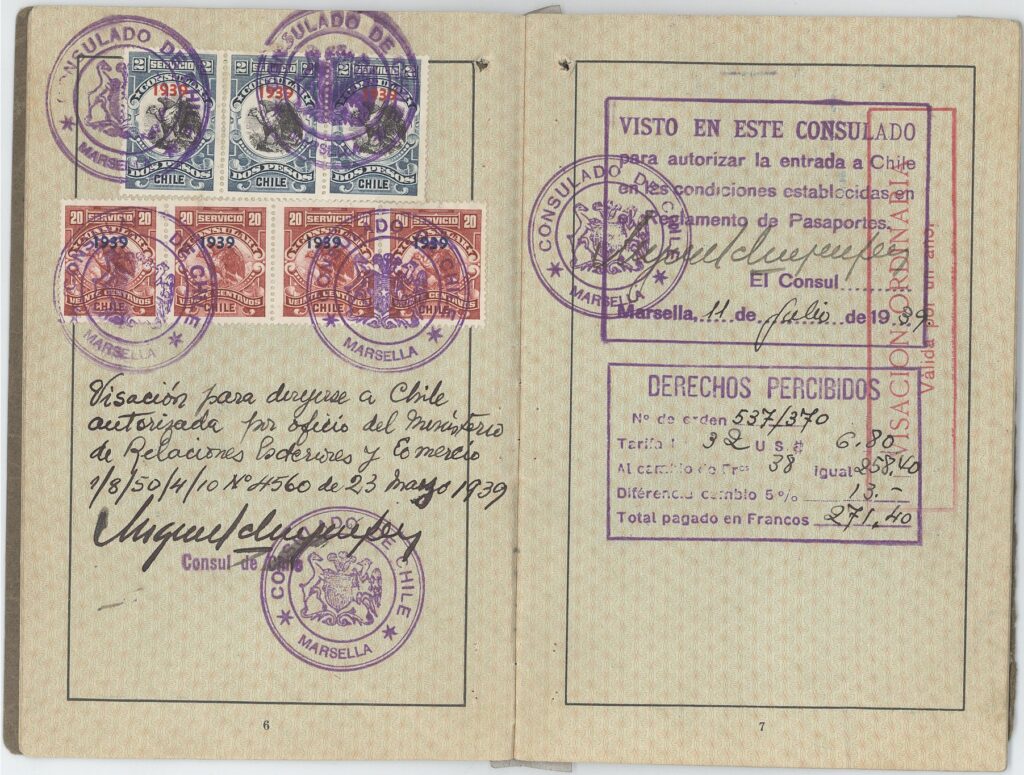 CONSULADO DE CHILE
MARSELLA
CONSULADO DE CHILE
MARSELLA
2 SERVICIO 2
CONSULAR
1939
DOS PESOS
CHILE
2 SERVICIO 2
CONSULAR
1939
DOS PESOS
CHILE
2 SERVICIO 2
CONSULAR
1939
DOS PESOS
CHILE
20 SERVICIO 20
CONSULAR
1939
VEINTE CENTAVOS
CHILE
20 SERVICIO 20
CONSULAR
1939
VEINTE CENTAVOS
CHILE
20 SERVICIO 20
CONSULAR
1939
VEINTE CENTAVOS
CHILE
20 SERVICIO 20
CONSULAR
1939
VEINTE CENTAVOS
CHILE
CONSULADO DE CHILE
MARSELLA
CONSULADO DE CHILE
MARSELLA
Visación para dirijirse a Chile
autorizada por oficio del Ministerio
de Relaciones Exteriores y Comercio
1/8/50/4/10 Nº 4560 de 23 Marzo 1939
Consul de Chile
CONSULADO DE CHILE
MARSELLA
6
VISTO EN ESTE CONSULADO
para autorizar la entrada a Chile
en las condiciones establecidas en
el Reglamento de Pasaportes.
El Consul
Marsella, 11 de Julio de 1939
CONSULADO DE CHILE
MARSELLA
VISACION ORDINARIA
Válida por un año.
DERECHOS PERCIBIDOS
Nº de orden 537/370
Tarifa 32 U.S.$ 6.80
Al cambio de Frcs 38 igual 258.40
Diferencia cambio 5% 13.-
Total pagado en Francos 271.40
7